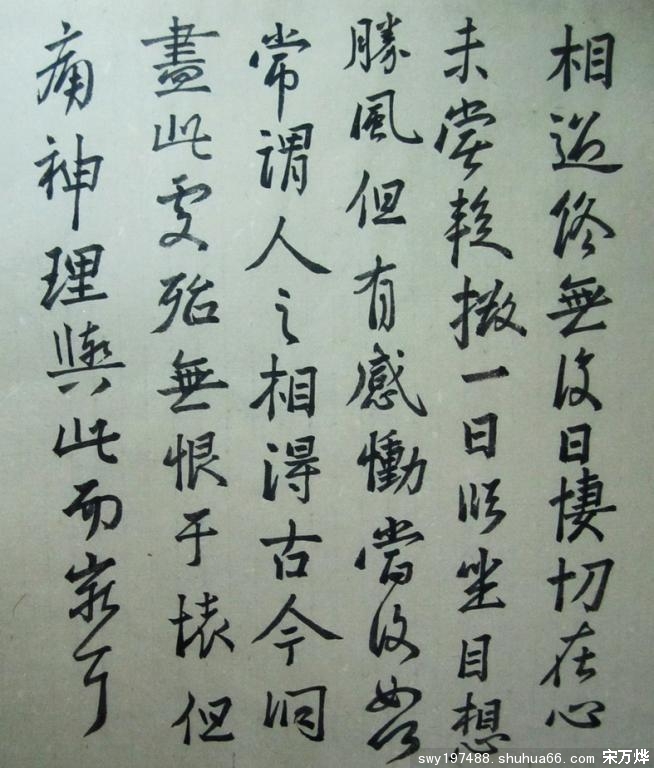 相過終無復日悽切在心
未嘗暫掇一日臨坐目想
勝風但有感慟當復如何
常謂人之相得古今洞
盡此處殆無恨于懷但
痛神理與此而窮耳
swy197488.shuhua66.com 宋万烨